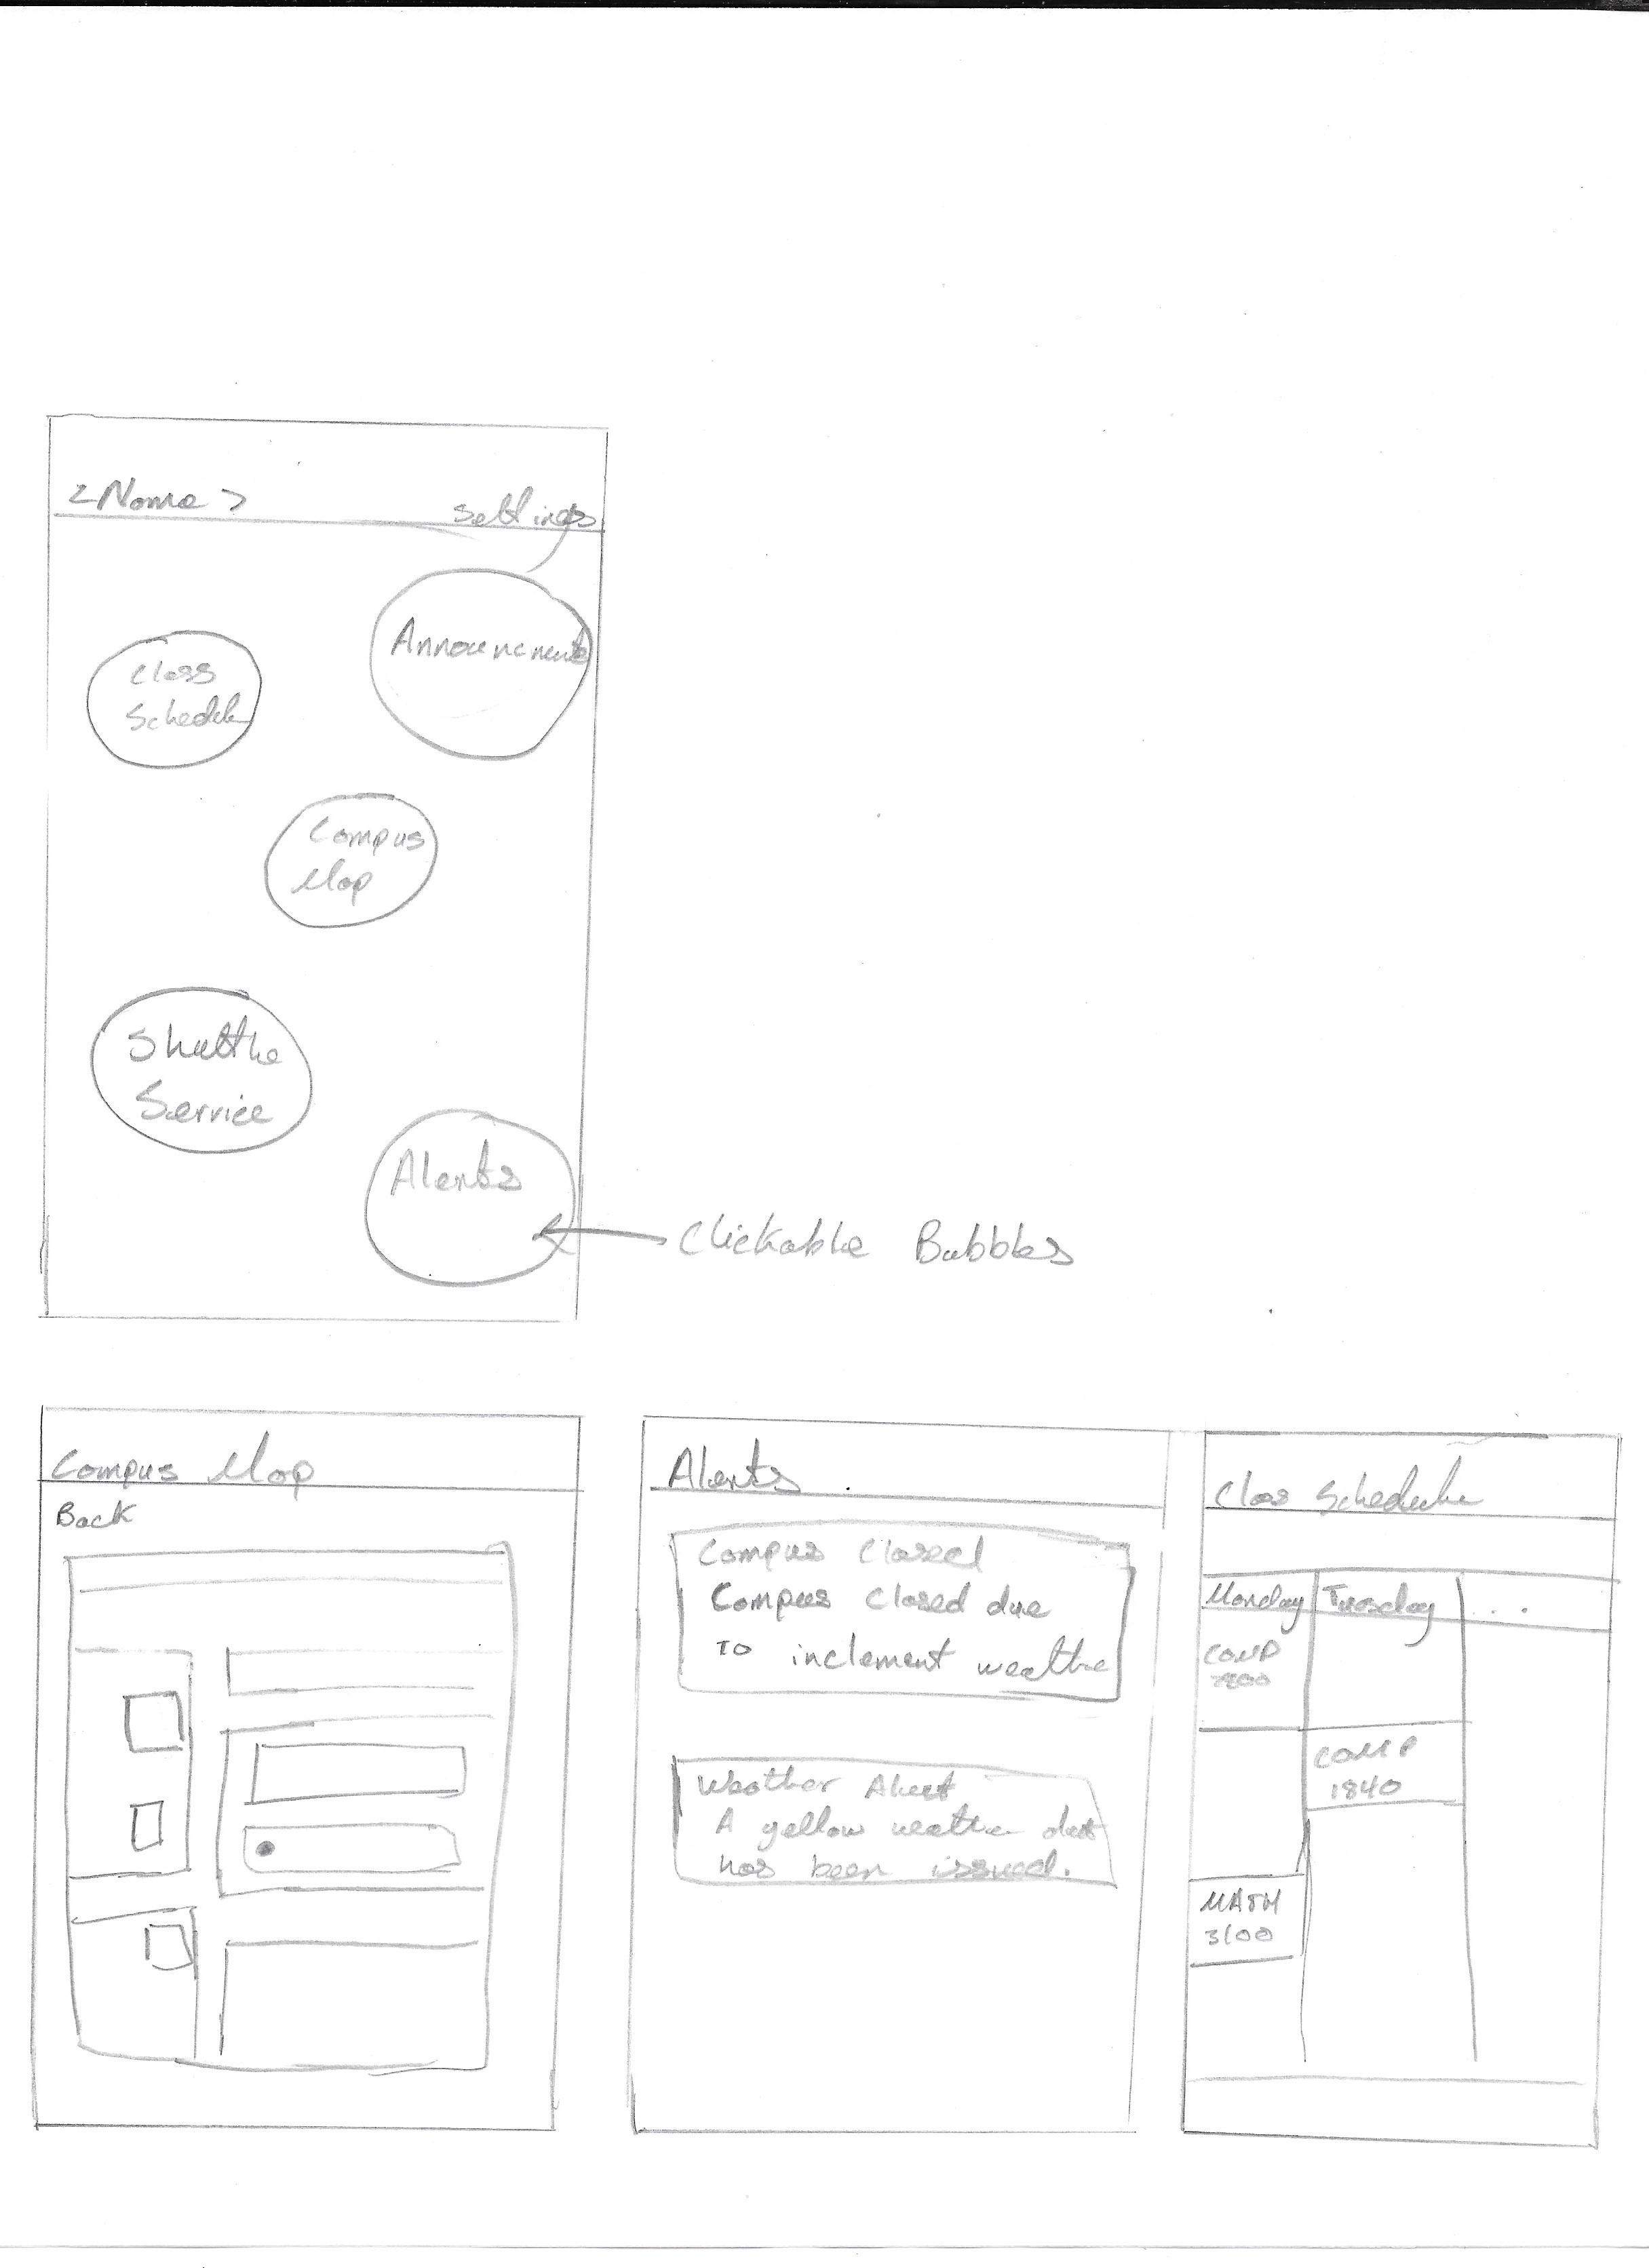 <Name>
Settings
Announcements
Class
Schedule
Campus
Map
Shuttle
Service
Alerts
Clickable Bubbles
Campus Map
Back
Alerts
Campus Closed
Campus Closed due
TO inclement weather
Weather Alert
A yellow weather alert
has been issued.
Class Schedule
Monday Tuesday ...
COMP
COMP
1840
MATH
3100